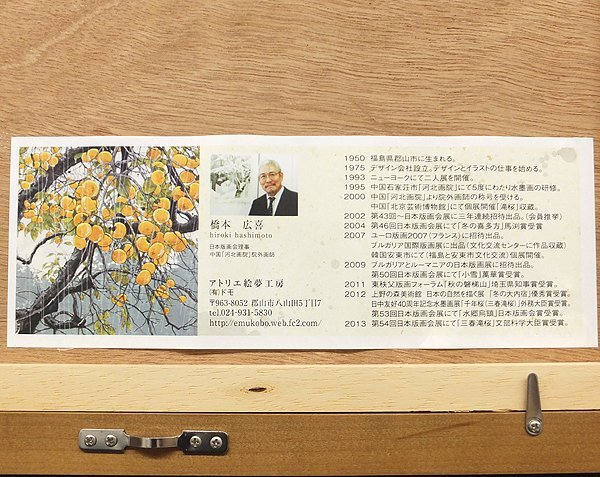 橋本 広喜
hiroki hashimoto
日本版画会理事
中国「河北画院」院外画師
アトリエ絵夢工房
(有)ドモ
〒963-8052 郡山市八山田5丁目7
tel.024-931-5830
http://emukobo.web.fc2.com/
1950 福島県郡山市に生まれる。
1975 デザイン会社設立。デザインとイラストの仕事を始める。
1993 ニューヨークにて二人展を開催。
1995 中国石家荘市「河北画院」にて5度にわたり水墨画の研修。
2000 中国「河北画院」より院外画師の称号を受ける。
中国「北京芸術博物館」にて個展開催「滝桜」収蔵。
2002 第43回〜日本版画会展に三年連続招待出品。(会員推挙)
2004 第46回日本版画会展にて「冬の喜多方」馬渕賞受賞
2007 ユーロ版画2007(フランス)に招待出品。
ブルガリア国際版画展に出品(文化交流センターに作品収蔵)
韓国安東市にて(福島と安東市文化交流)個展開催。
2009 ブルガリアとルーマニアの日本版画展に招待出品。
第50回日本版画会展にて「小雪」萬葉賞受賞。
2011 東秩父版画フォーラム「秋の磐梯山」埼玉県知事賞受賞。
2012 上野の森美術館 日本の自然を描く展 「冬の大内宿」優秀賞受賞。
日中友好40周年記念水墨画展「千年桜(三春滝桜)」外務大臣賞受賞。
第53回日本版画会展にて「水郷烏鎮」日本版画会賞受賞。
2013 第54回日本版画会展にて「三春滝桜」文部科学大臣賞受賞。